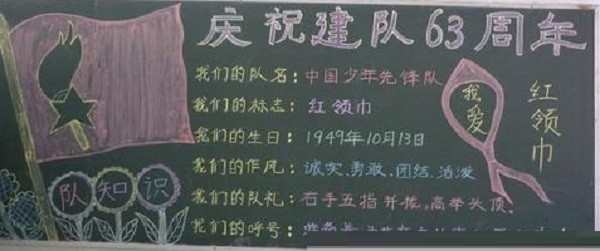 庆祝建队63周年
我们的队名：中国少年先锋队
我们的标志：红领巾
我们的生日：1949年10月13日
我们的作风：诚实、勇敢、团结、活泼
我们的队礼：右手五指并拢，高举头顶。
我们的呼号：
我爱
红领巾
队知识